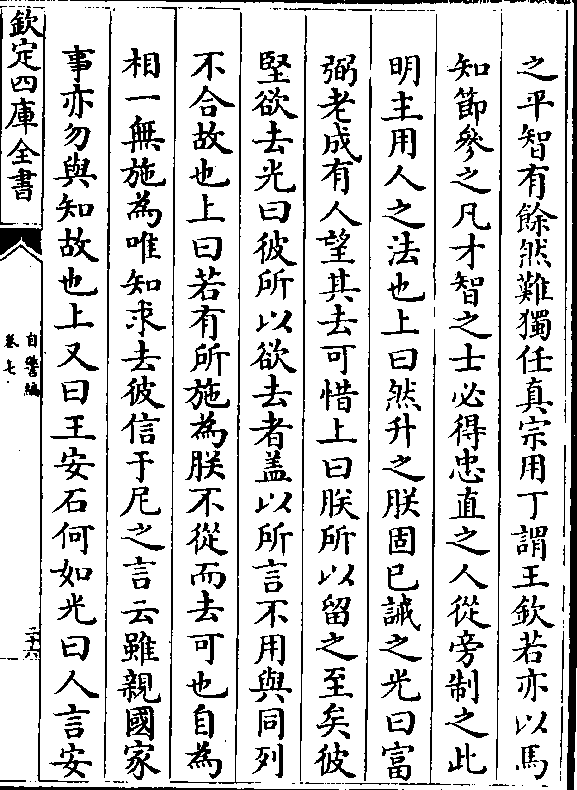 之平智有餘然難獨任真宗用丁謂王欽若亦以馬
知節參之凡才智之士必得忠直之人從旁制之此
明主用人之法也上曰然升之朕固已誡之光曰富
弼老成有人望其去可惜上曰朕所以留之至矣彼
堅欲去光曰彼所以欲去者盖以所言不用與同列
不合故也上曰若有所施為朕不從而去可也自為
相一無施為唯知求去彼信于尼之言云雖親國家
事亦勿與知故也上又曰王安石何如光曰人言安
欽定四庫全書
自警編
卷七
二十六